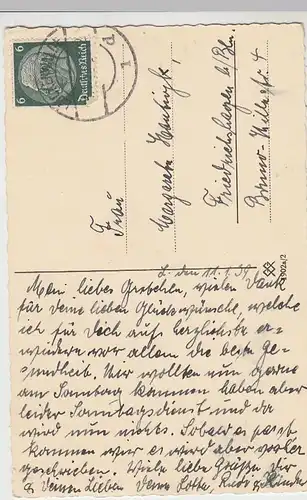 6 Deutsches Reich 6
d
1
Frau
Margarete
Friedrichshagen b/Bln.
Bruno-Wille-Str. 4
L. den 11.1.39
902a/2
Mein liebes Gretchen, vielen Dank
für Deine lieben Glückwünsche, welche
ich für Dich auf herzlichste er-
widere vor allem die beste Ge-
sundheit. Wir wollten nun gerne
am Sonntag kommen haben aber
leider Sonntagsdienst und da
wird nun nichts. Sobald es passt
kommen wir es wird aber vorher
geschrieben. Viele liebe Grüße Dir
& Deinen Lieben Deine Lotte, Rudi & Kinder